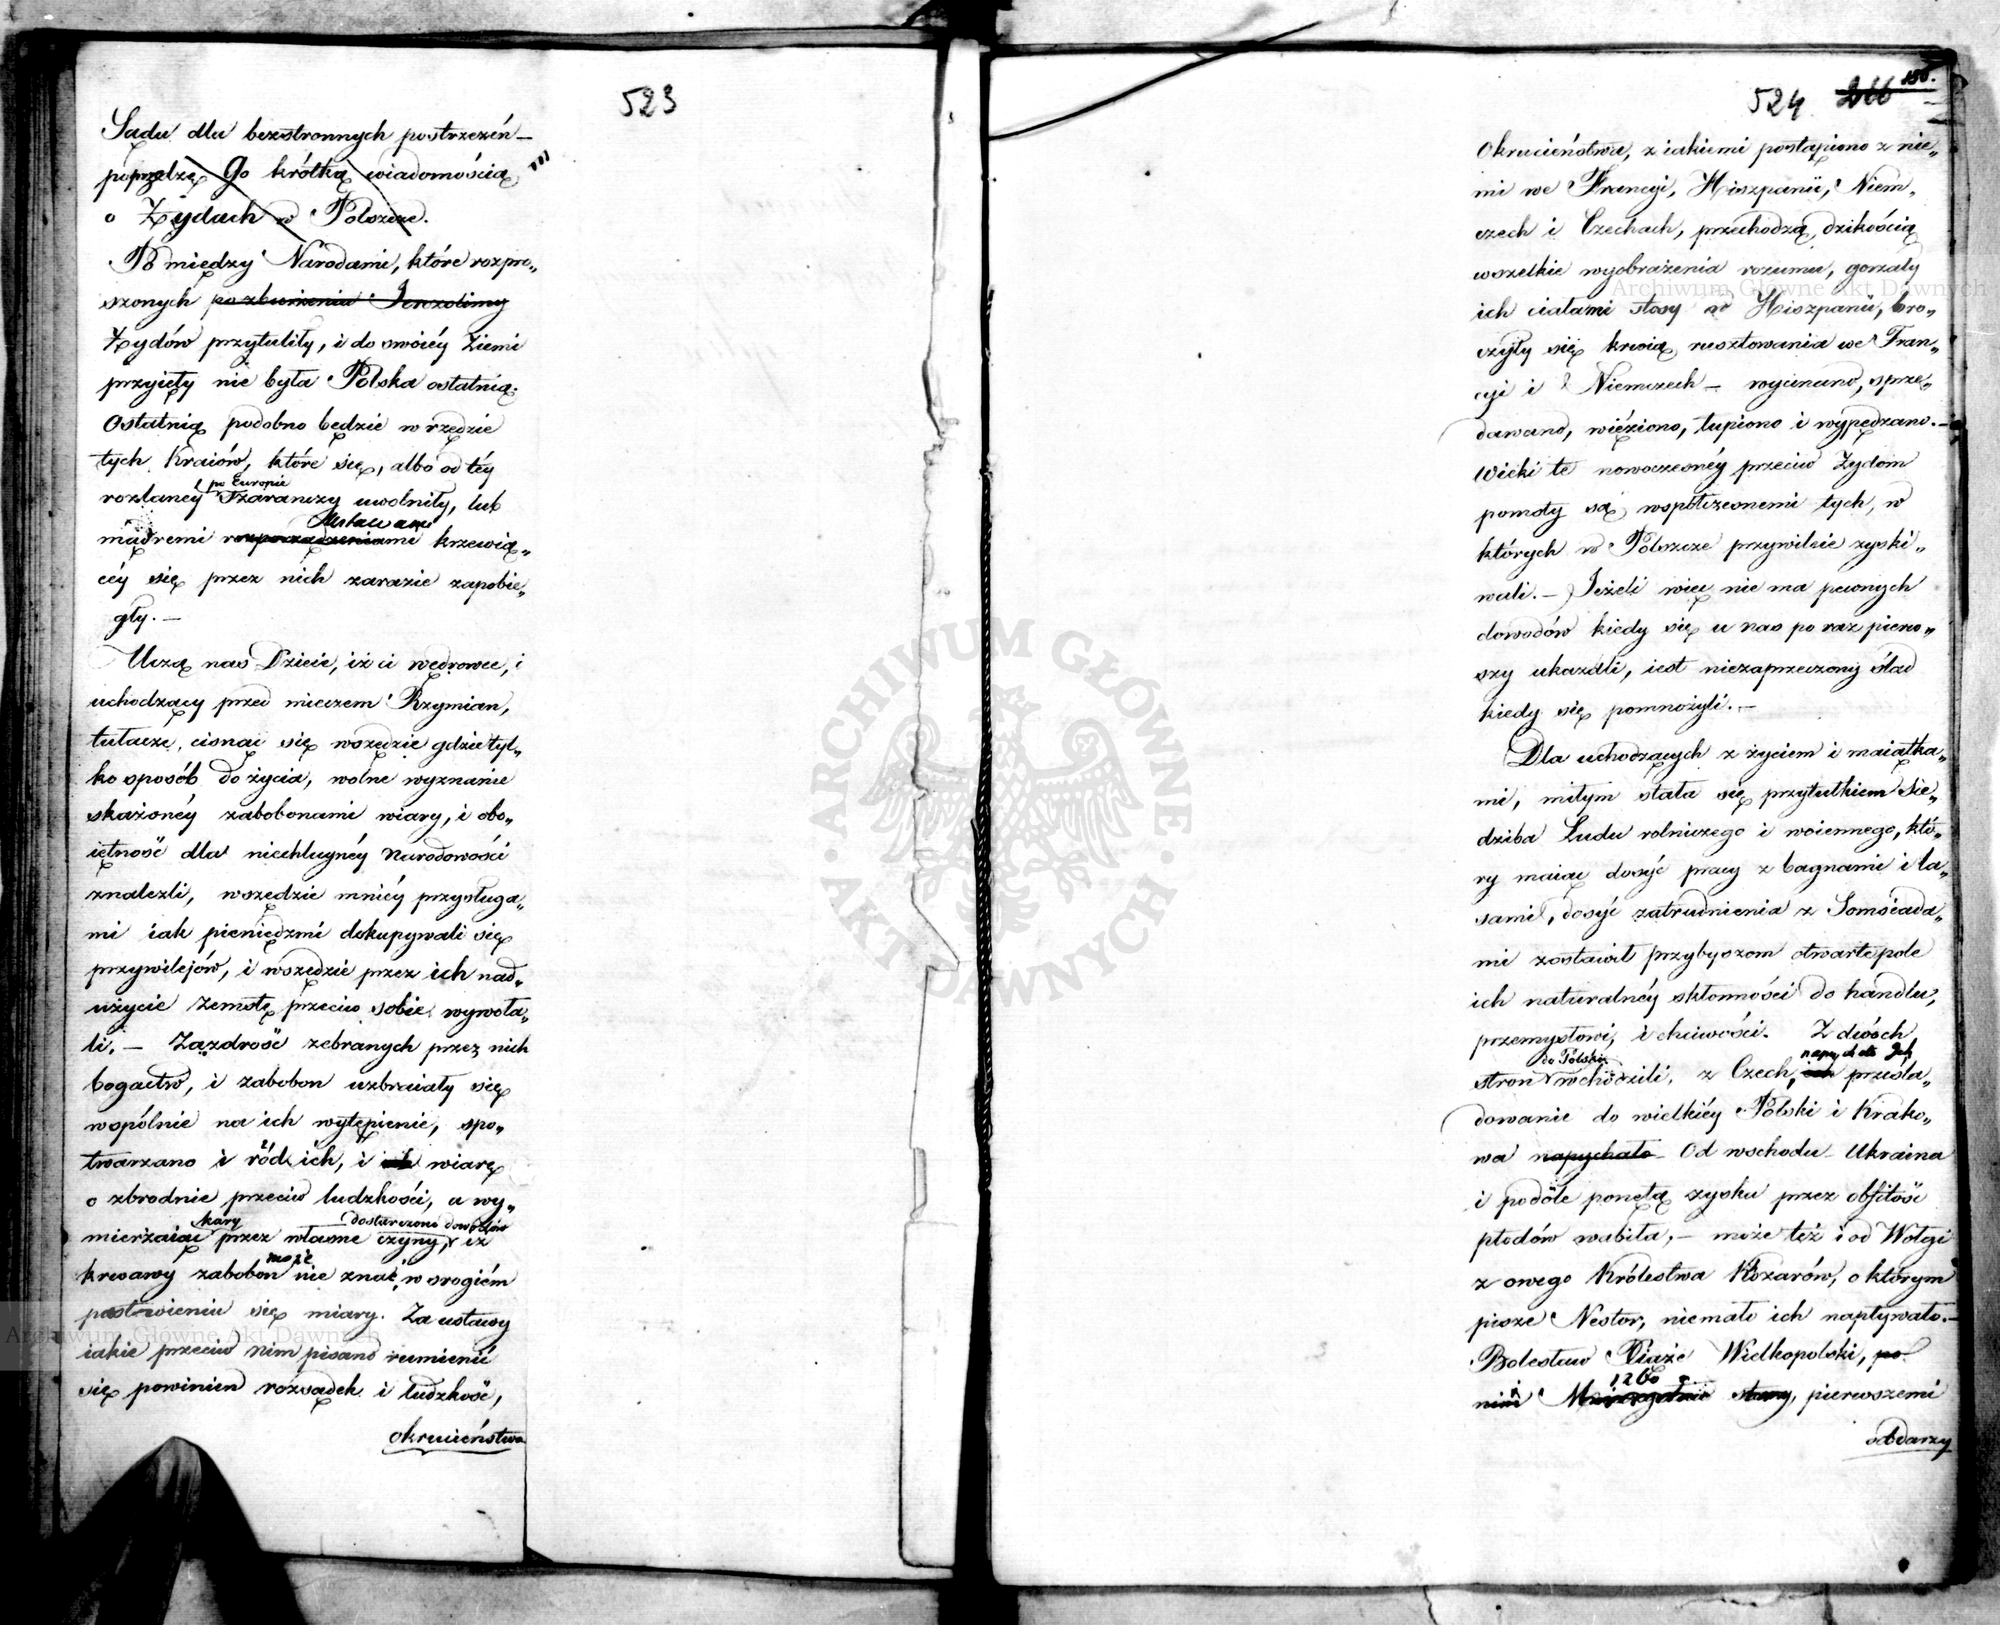 523
Sądu dla bezstronnych postrzeżeń —
poprzedzę go krótką wiadomością
o Żydach w Polszcze.
Po między Narodami, które rozpro„
szonych po zburzeniu Jerozolimy
Żydów przytuliły, i do swoiéy Ziemi
przyięły nie była Polska ostatnią.
Ostatnią podobno będzie w rzędzie
tych Kraiów, które się, albo od téy
rozlanéy po Europie Szarańczy uwolniły, lub
mądremi rozporządzeniami Ustawami krzewią„
céy się przez nich zarazie zapobie„
gły. —
Uczą nas Dzieie, iż ci wędrowce, i
uchodzący przed mieczem Rzymian,
tułacze, cisnąc się wszędzie gdzie tyl„
ko sposób do życia, wolne wyznanie
skażonéy zabobonami wiary, i obo„
iętność dla niechluynéy Narodowości
znalezli, wszędzie mniéy przysługa„
mi iak pieniędzmi dokupywali się
przywilejów, i wszędzie przez ich nad„
użycie zemstę przeciw sobie wywoła„
li. — Zazdrość zebranych przez nich
bogactw, i zabobon uzbraiały się
wspólnie na ich wytępienie, spo„
twarzano i ród ich, i ich wiarę
o zbrodnie przeciw ludzkości, a wy„
mierzaiąc kary przez własne czyny, dostarczono dowodów iż
krwawy zabobon nie może znać w srogiém
pastwieniu się miary. Za ustawy
iakie przeciw nim pisano rumienić
się powinien rozsądek i ludzkość,
okrucieństwa
524 266 186.
Okrucieństwa, z iakiemi postąpiono z nie„
mi we Francyi, Hiszpanii, Niem„
czech i Czechach, przechodzą dzikością
wszelkie wyobrażenia rozumu, gorzały
ich ciałami stosy w Hiszpanii, bro„
czyły się krwią rusztowania we Fran„
cyi i Niemczech — wycinano, sprze„
dawano, więziono, łupiono i wypędzano. —
Wieki te nowoczesnéy przeciw Żydom
pomsty są współczesnemi tych, w
których w Polszcze przywileie zyski„
wali. — Jeżeli więc nie ma pewnych
dowodów kiedy się u nas po raz pierw„
szy ukazali, iest niezaprzeczony ślad
kiedy się pomnożyli. —
Dla uchodzących z życiem i maiątka„
mi, miłym stała się przytułkiem Sie„
dziba Ludu rolniczego i woiennego, któ„
ry maiąc dosyć pracy z bagnami i la„
sami, dosyć zatrudnienia z Somsiada„
mi zostawił przybyszom otwarte pole
ich naturalnéy skłonności do handlu,
przemysłowi, i chciwości. Z dwóch
stron do Polski wchodzili, z Czech, ich napychało Ich prześla„
dowanie do wielkiéy Polski i Krako„
wa napychało Od wschodu Ukraina
i podole ponętą zysku przez obfitość
płodów wabiła, — może téż i od Wołgi
z owego Królestwa Kozarów, o którym
pisze Nestor, niemało ich napływało. —
Bolesław Xiąże Wielkopolski, po
1260
pierwszemi
obdarzy